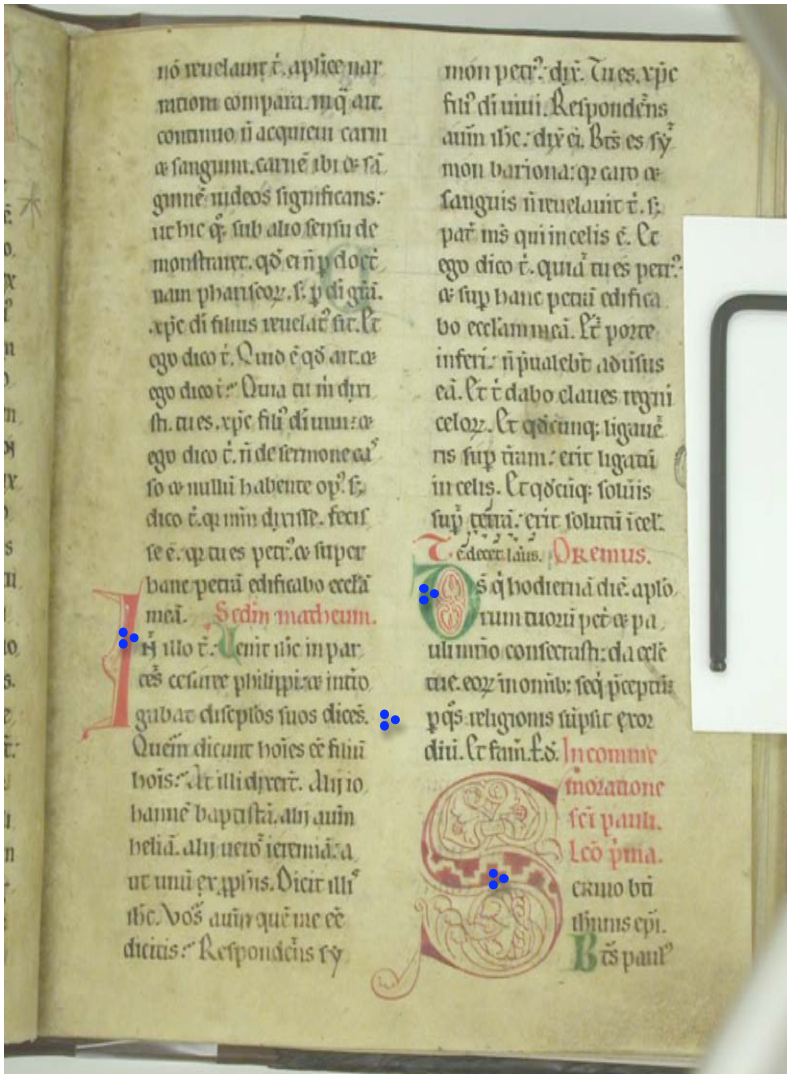 nō reuelauit t̄. aplicę nar
rationi compara. in q̄ ait.
continuo n̄ acquieui carni
& sanguini. carnē ibi & sā
guinē iudeos significans:
ut hic q̄ꝫ sub alio sensu de
monstraret. qđ ei n̄ p doct
nam phariseoꝝ. sꝫ p di grām.
xp̄c di filius reuelat᷒ sit. Et
ego dico t̄. Quid ē qđ ait. &
ego dico t̄: Quia tu m̄ dixi
sti. tu es. xp̄c fili᷒ di uiui: &
ego dico t̄. n̄ de sermone ca᷒
so & nullū habente op᷒. sꝫ
dico t̄. q̄ m̄m dixisse. fecis
se ē. q̄ tu es petr᷒. & super
hanc petrā edificabo ecclā
meā. Scd̄m matheum.
IN illo t̄. Uenit ih̄c in par
tes cesaree philippi: & inťro
gabat discipłos suos dicēs.
Quem dicunt hoīes eē filiū
hoīs: At illi dixer̄t. Alij io
hannē baptistā. alij autm̄
heliā. alij uero ieremiā. a
ut unū ex p̄phis. Dicit illi᷒
ih̄c. Vos autm̄ quē me eē
dicitis: Respondens sy
mon petr᷒: dix̄. Tu es. xp̄c
fili᷒ di uiui. Respondens
autm̄ ih̄c: dix̄ ei. Bt̄s es sy
mon bariona: q̄ caro &
sanguis n̄ reuelauit t̄. sꝫ
pat̄ m̄s qui in celis ē. Et
ego dico t̄. quia tu es petr᷒
& sup hanc petrā edifica
bo ecclām meā. Et porte
inferi: n̄ p̄ualeb̄t aduersus
eā. Et t̄ dabo claues regni
celoꝝ. Et qđcunqꝫ ligaue
ris sup terram: erit ligatū
in celis. Et qđcūqꝫ solūis
sup terrā: erit solutū ī cel̄.
Te decet laus. Oremus.
Ds q̄ hodiernā diē. aplo
rum tuorū pet̄ & pa
uli mr̄io consecrasti: da ecclē
tue. eoꝝ in om̄ibꝫ seq̄ p̄ceptū
p q̄s religionis sūpsit exor
diū. Et fam̄. t. đ. In comme
moratione
sc̄i pauli.
Lc̄o p̄ma.
SERMO bt̄i
ih̄nnis ep̄i.
Bt̄s paul᷒